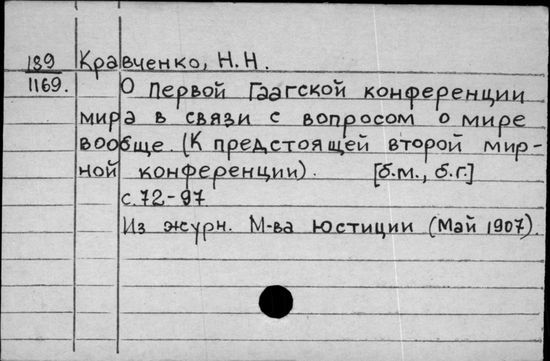 139 Кравченко, Н.Н.
1169. О Первой Гаагской конференции
мира в связи с вопросом о мире
вообще. (К предстоящей второй мир-
ной конференции). [б.м., б.г.]
с. 72-97
Из журн. М-ва Юстиции (Май 1907).